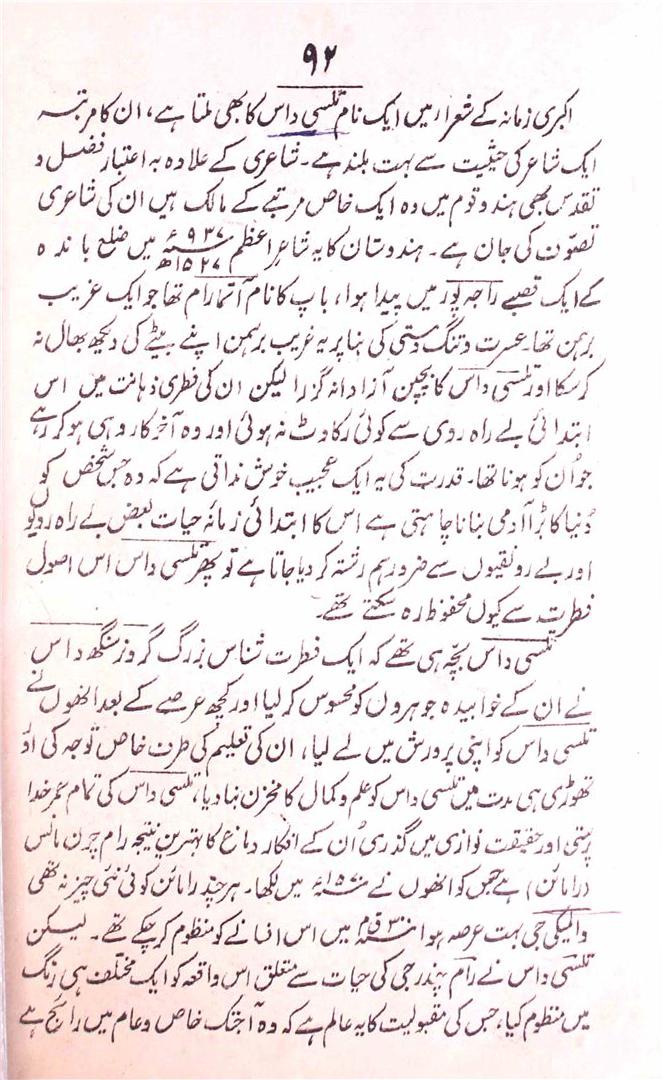 ۹۲
اکبری زمانہ کے شعراء میں ایک نام تلسی داس کا بھی ملتا ہے، ان کا مرتبہ
ایک شاعر کی حیثیت سے بہت بلند ہے۔ شاعری کے علاوہ بہ اعتبار فضل و
تقدس بھی ہندو قوم میں وہ ایک خاص مرتبے کے مالک ہیں ان کی شاعری
تصوّف کی جان ہے۔ ہندوستان کا یہ شاعر اعظم ۹۳۷ء ۱۵۲۷ھ میں ضلع باندہ
کے ایک قصبے راجہ پور میں پیدا ہوا، باپ کا نام آتمارام تھا جو ایک غریب
برہمن تھا۔ عسرت و تنگ دستی کی بنا پر یہ غریب برہمن اپنے بیٹے کی دیکھ بھال نہ
کر سکا اور تلسی داس کا بچپن آزادانہ گزرا لیکن ان کی فطری ذہانت میں اس
ابتدائی بے راہ روی سے کوئی رکاوٹ نہ ہوئی اور وہ آخر کار وہی ہو کر رہے
جو اُن کو ہونا تھا۔ قدرت کی یہ ایک عجیب خوش مذاتی ہے کہ وہ جس شخص کو
دُنیا کا بڑا آدمی بنانا چاہتی ہے اس کا ابتدائی زمانۂ حیات بعض بے راہ رویوں
اور بے رونقیوں سے ضرور ہم رشتہ کر دیا جاتا ہے تو پھر تلسی داس اس اصول
فطرت سے کیوں محفوظ رہ سکتے تھے۔
تلسی داس بچّہ ہی تھے کہ ایک فطرت شناس بزرگ گرو نرسنگھ داس
نے ان کے خوابیدہ جوہروں کو محسوس کر لیا اور کچھ عرصے کے بعد انھوں نے
تلسی داس کو اپنی پرورش میں لے لیا، ان کی تعلیم کی طرف خاص توجہ کی اور
تھوڑی ہی مدت میں تلسی داس کو علم و کمال کا مخزن بنا دیا، تلسی داس کی تمام عمر خدا
پرستی اور حقیقت نوازی میں گذری اُن کے افکار دماغ کا بہترین نتیجہ رام چرن مانس
(رامائن) ہے جس کو انھوں نے میں لکھا۔ ہر چند رامائن کوئی نئی چیز نہ تھی
والمیکی جی بہت عرصہ ہوا ۳۰۰ ق م میں اس افسانے کو منظوم کر چکے تھے۔ لیکن
تلسی داس نے رام چندر جی کی حیات سے متعلق اس واقعہ کو ایک مختلف ہی رنگ
میں منظوم کیا، جس کی مقبولیت کا یہ عالم ہے کہ وہ آجتک خاص و عام میں رائج ہے